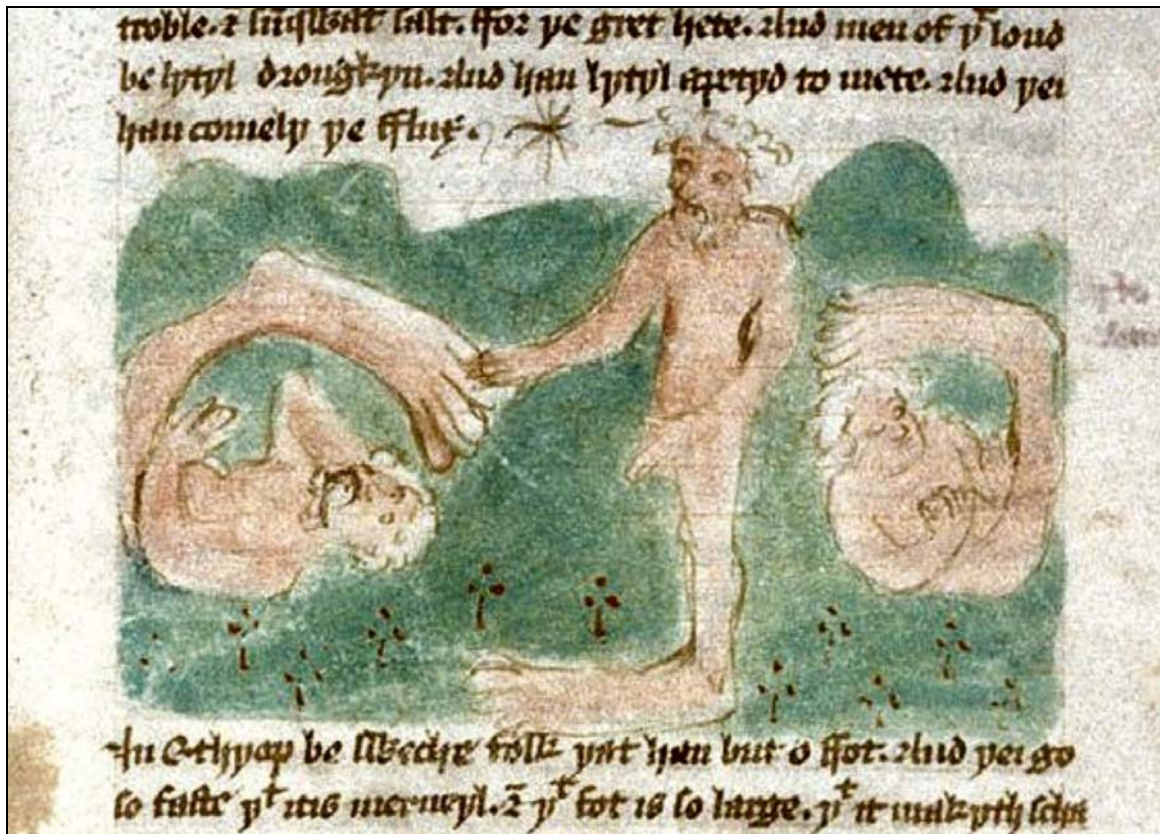 troble. & sūqwat salt. ffor ye gret hete. And men of yͭ lond
be lytyl drongkyn. And han lytyl apetyd to mete. And yei
han comely ye fflux.
In Ethyop be folk yat han but o ffot. And yei go
so faste yͭ it is merueyl. & yͭ fot is so large. yͭ it makyth